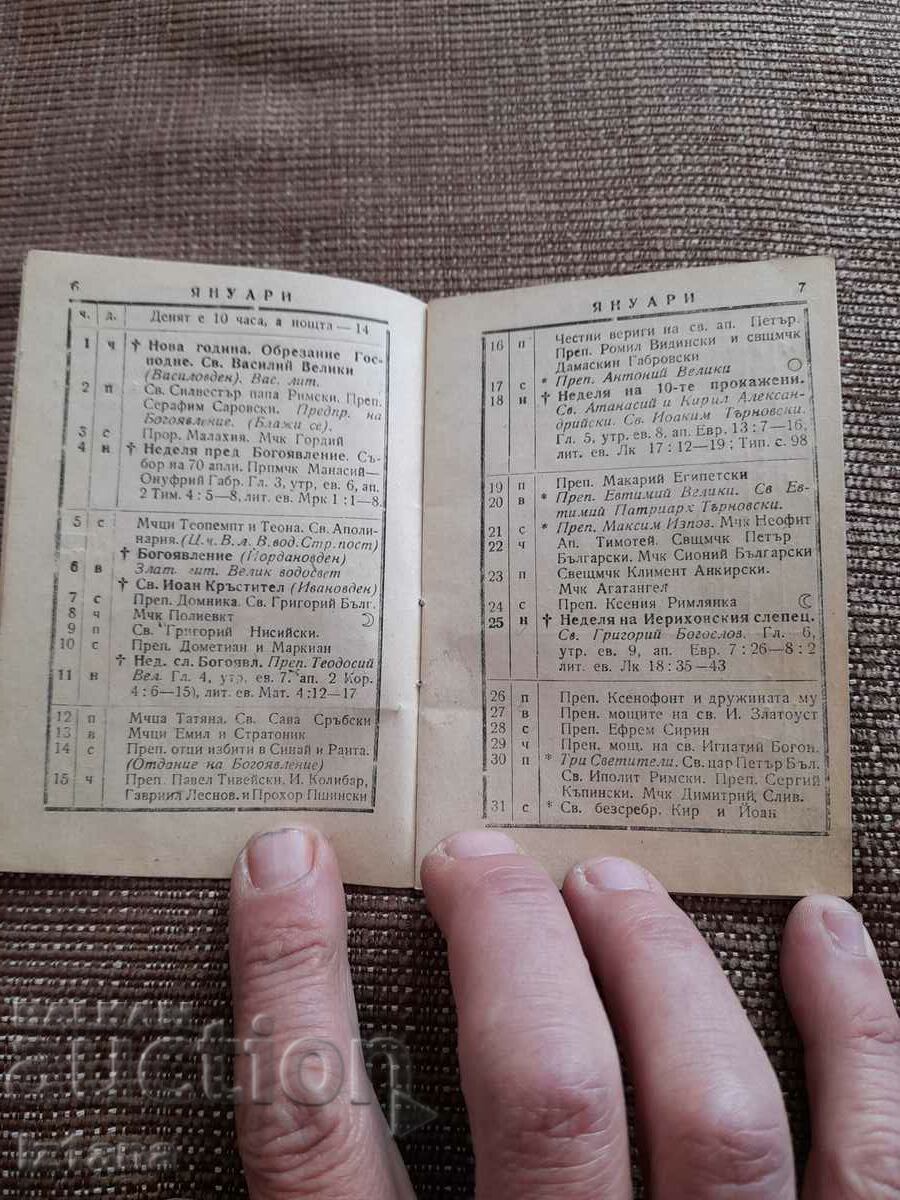 6
ЯНУАРИ
ч. д. Денят е 10 часа, а нощта — 14
1 ч † Нова година. Обрезание Гос-
подне. Св. Василий Велики
(Василовден). Вас. лит.
2 п Св. Силвестър папа Римски. Преп.
Серафим Саровски. Предпр. на
Богоявление. (Блажи се).
3 с Прор. Малахия. Мчк Гордий
4 н † Неделя пред Богоявление. Съ-
бор на 70 апли. Прпмчк Манасий—
Онуфрий Габр. Гл. 3, утр. ев. 6, ап.
2 Тим. 4 : 5—8, лит. ев. Мрк 1 : 1—8.
5 с Мчци Теопемпт и Теона. Св. Аполи-
нария. (Ц. ч. В. л. В. вод. Стр. пост)
† Богоявление (Йордановден)
6 в Злат. лит. Велик водосвет
† Св. Иоан Кръстител (Ивановден)
7 с Преп. Домника. Св. Григорий Бълг.
8 ч Мчк Полиевкт
9 п Св. Григорий Нисийски.
10 с Преп. Дометиан и Маркиан
† Нед. сл. Богоявл. Преп. Теодосий
11 н Вел. Гл. 4, утр. ев. 7. ап. 2 Кор.
4 : 6—15), лит. ев. Мат. 4 : 12—17
12 п Мчца Татяна. Св. Сава Сръбски
13 в Мчци Емил и Стратоник
14 с Преп. отци избити в Синай и Раита.
(Отдание на Богоявление)
15 ч Преп. Павел Тивейски. И. Колибар,
Гавриил Леснов. и Прохор Пшински
7
ЯНУАРИ
16 п Честни вериги на св. ап. Петър.
Преп. Ромил Видински и свщмчк
Дамаскин Габровски
17 с * Преп. Антоний Велики
18 н † Неделя на 10-те прокажени.
Св. Атанасий и Кирил Александ-
рийски. Св. Иоаким Търновски.
Гл. 5, утр. ев. 8, ап. Евр. 13 : 7—16,
лит. ев. Лк 17 : 12—19; Тип. с. 98
19 п Преп. Макарий Египетски
20 в * Преп. Евтимий Велики. Св Ев-
тимий Патриарх Търновски.
21 с * Преп. Максим Изпов. Мчк Неофит
22 ч Ап. Тимотей. Свщмчк Петър
Български. Мчк Сионий Български
23 п Свещмчк Климент Анкирски.
Мчк Агатангел
24 с Преп. Ксения Римлянка
25 н † Неделя на Иерихонския слепец.
Св. Григорий Богослов. Гл. 6,
утр. ев. 9, ап. Евр. 7 : 26—8 : 2
лит. ев. Лк 18 : 35—43
26 п Преп. Ксенофонт и дружината му
27 в Прен. мощите на св. И. Златоуст
28 с Преп. Ефрем Сирин
29 ч Прен. мощ. на св. Игнатий Богон.
30 п * Три Светители. Св. цар Петър Бъл.
Св. Иполит Римски. Преп. Сергий
Къпински. Мчк Димитрий, Слив.
31 с * Св. безсребр. Кир и Йоан
BALKAN
auction